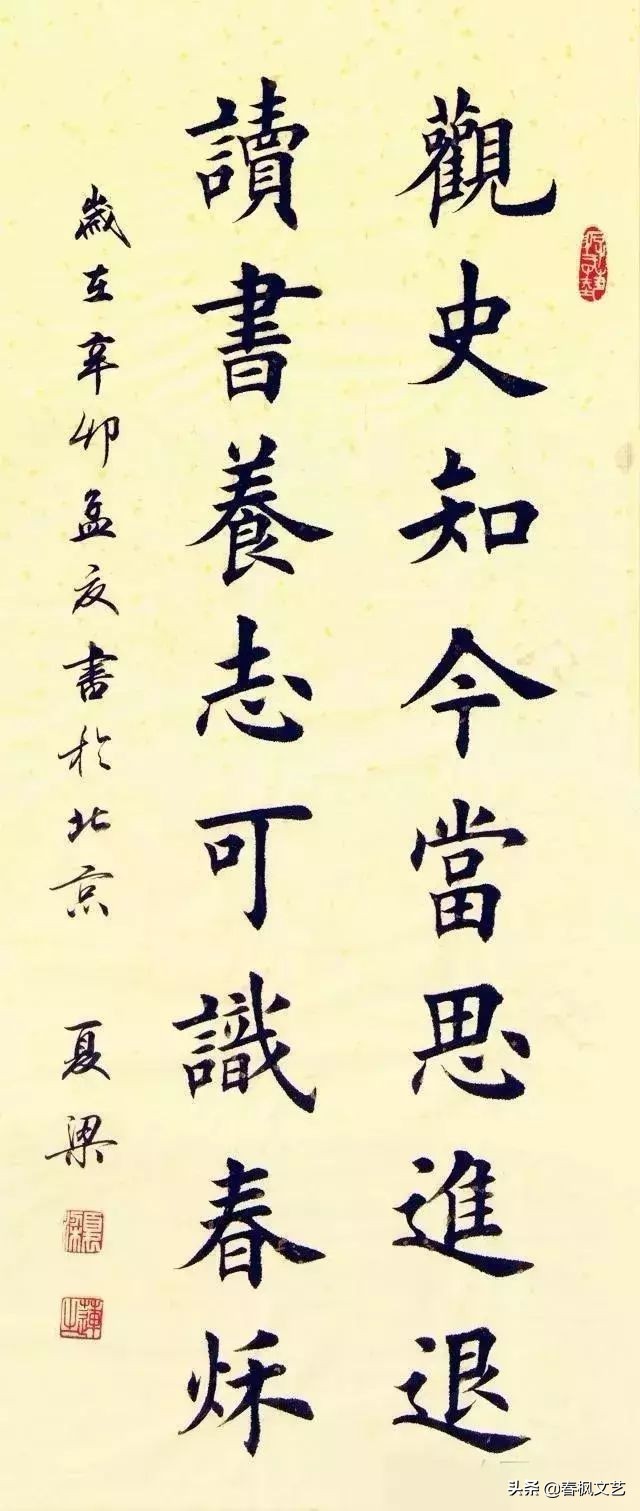 觀史知今當思進退
讀書養志可識春秌
歲在辛卯孟夏書於北京 夏梁
夏梁
头条 @春枫文艺